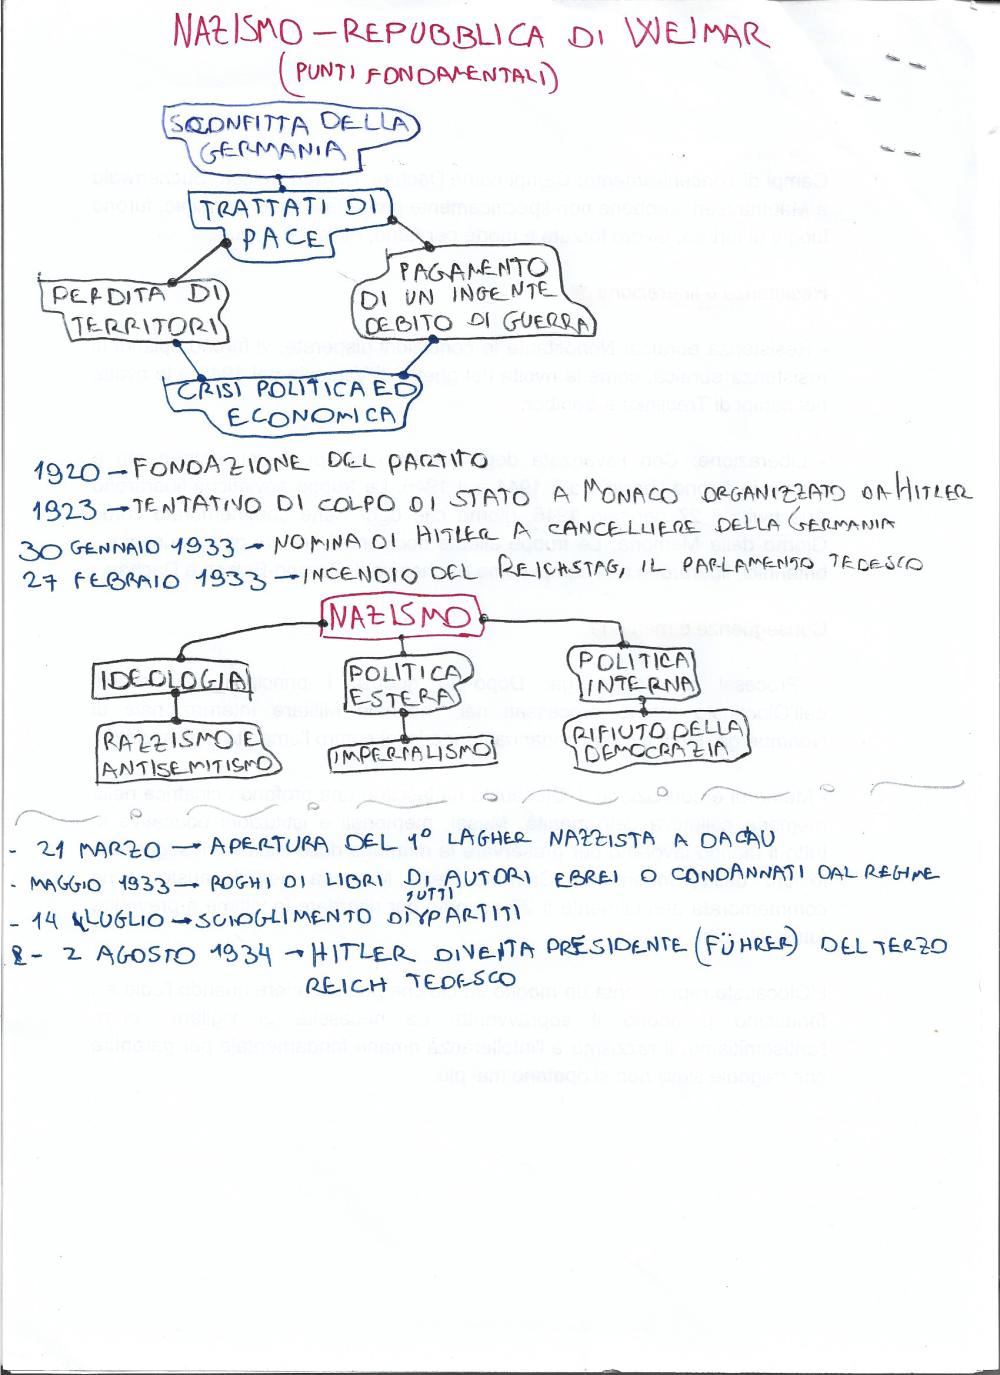 NAZISMO - REPUBBLICA DI WEIMAR
(PUNTI FONDAMENTALI)
SCONFITTA DELLA
GERMANIA
TRATTATI DI
PACE
PERDITA DI
TERRITORI
PAGAMENTO
DI UN INGENTE
DEBITO DI GUERRA
CRISI POLITICA ED
ECONOMICA
1920 → FONDAZIONE DEL PARTITO
1923 → TENTATIVO DI COLPO DI STATO A MONACO ORGANIZZATO DA HITLER
30 GENNAIO 1933 → NOMINA DI HITLER A CANCELLIERE DELLA GERMANIA
27 FEBRAIO 1933 → INCENDIO DEL REICHSTAG, IL PARLAMENTO TEDESCO
NAZISMO
IDEOLOGIA
RAZZISMO E
ANTISEMITISMO
POLITICA
ESTERA
IMPERIALISMO
POLITICA
INTERNA
RIFIUTO DELLA
DEMOCRAZIA
- 21 MARZO → APERTURA DEL 1° LAGHER NAZZISTA A DACAU
- MAGGIO 1933 → ROGHI DI LIBRI DI AUTORI EBREI O CONDANNATI DAL REGIME
- 14 LUGLIO → SCIOGLIMENTO DI TUTTI PARTITI
- 2 AGOSTO 1934 → HITLER DIVENTA PRESIDENTE (FÜHRER) DEL TERZO
REICH TEDESCO